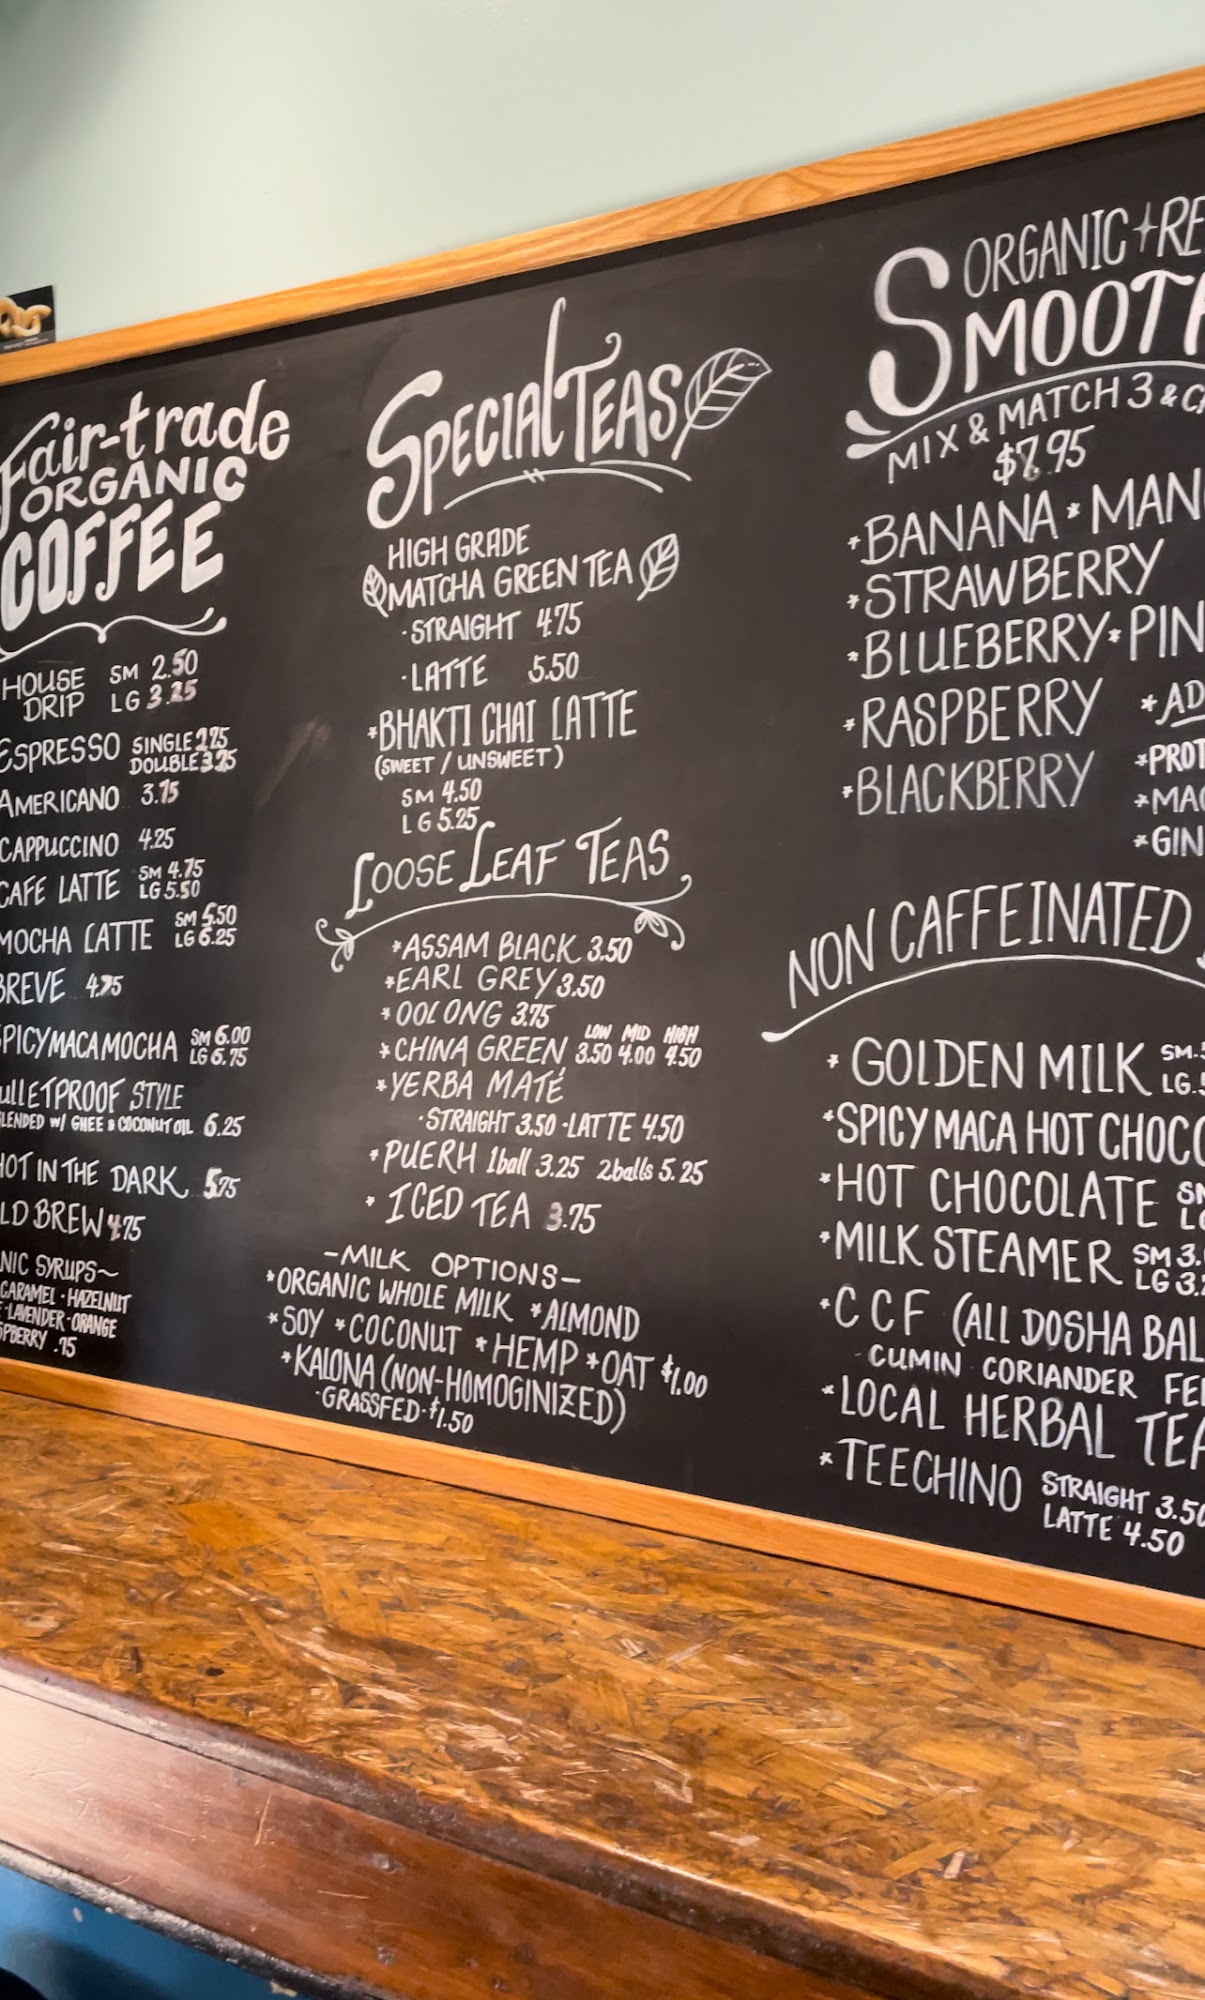 Fair-trade
ORGANIC
COFFEE
HOUSE DRIP SM 2.50
LG 3.25
ESPRESSO SINGLE 2.75
DOUBLE 3.25
AMERICANO 3.75
CAPPUCCINO 4.25
CAFE LATTE SM 4.75
LG 5.50
MOCHA LATTE SM 5.50
LG 6.25
BREVE 4.75
SPICY MACA MOCHA SM 6.00
LG 6.75
BULLETPROOF STYLE
BLENDED W/ GHEE & COCONUT OIL 6.25
HOT IN THE DARK 5.75
LD BREW 4.75
NIC SYRUPS~
CARAMEL · HAZELNUT
· LAVENDER · ORANGE
SPBERRY .75
SPECIAL TEAS
HIGH GRADE
MATCHA GREEN TEA
· STRAIGHT 4.75
· LATTE 5.50
*BHAKTI CHAI LATTE
(SWEET / UNSWEET)
SM 4.50
LG 5.25
LOOSE LEAF TEAS
*ASSAM BLACK 3.50
*EARL GREY 3.50
*OOLONG 3.75
LOW MID HIGH
*CHINA GREEN 3.50 4.00 4.50
*YERBA MATÉ
· STRAIGHT 3.50 - LATTE 4.50
*PUERH 1ball 3.25 2balls 5.25
* ICED TEA 3.75
-MILK OPTIONS-
*ORGANIC WHOLE MILK *ALMOND
*SOY *COCONUT *HEMP *OAT $1.00
*KALONA (NON-HOMOGINIZED)
· GRASSFED · $1.50
ORGANIC + RE
SMOOTH
MIX & MATCH 3 & C
$7.95
*BANANA * MAN
*STRAWBERRY
*BLUEBERRY * PIN
*RASPBERRY
*BLACKBERRY
*AD
*PROT
*MAC
*GIN
NON CAFFEINATED
* GOLDEN MILK SM.
LG.
*SPICY MACA HOT CHOCO
*HOT CHOCOLATE SM
LG
*MILK STEAMER SM 3.
LG 3.
*CCF (ALL DOSHA BAL
CUMIN CORIANDER FE
*LOCAL HERBAL TEA
*TEECHINO STRAIGHT 3.50
LATTE 4.50